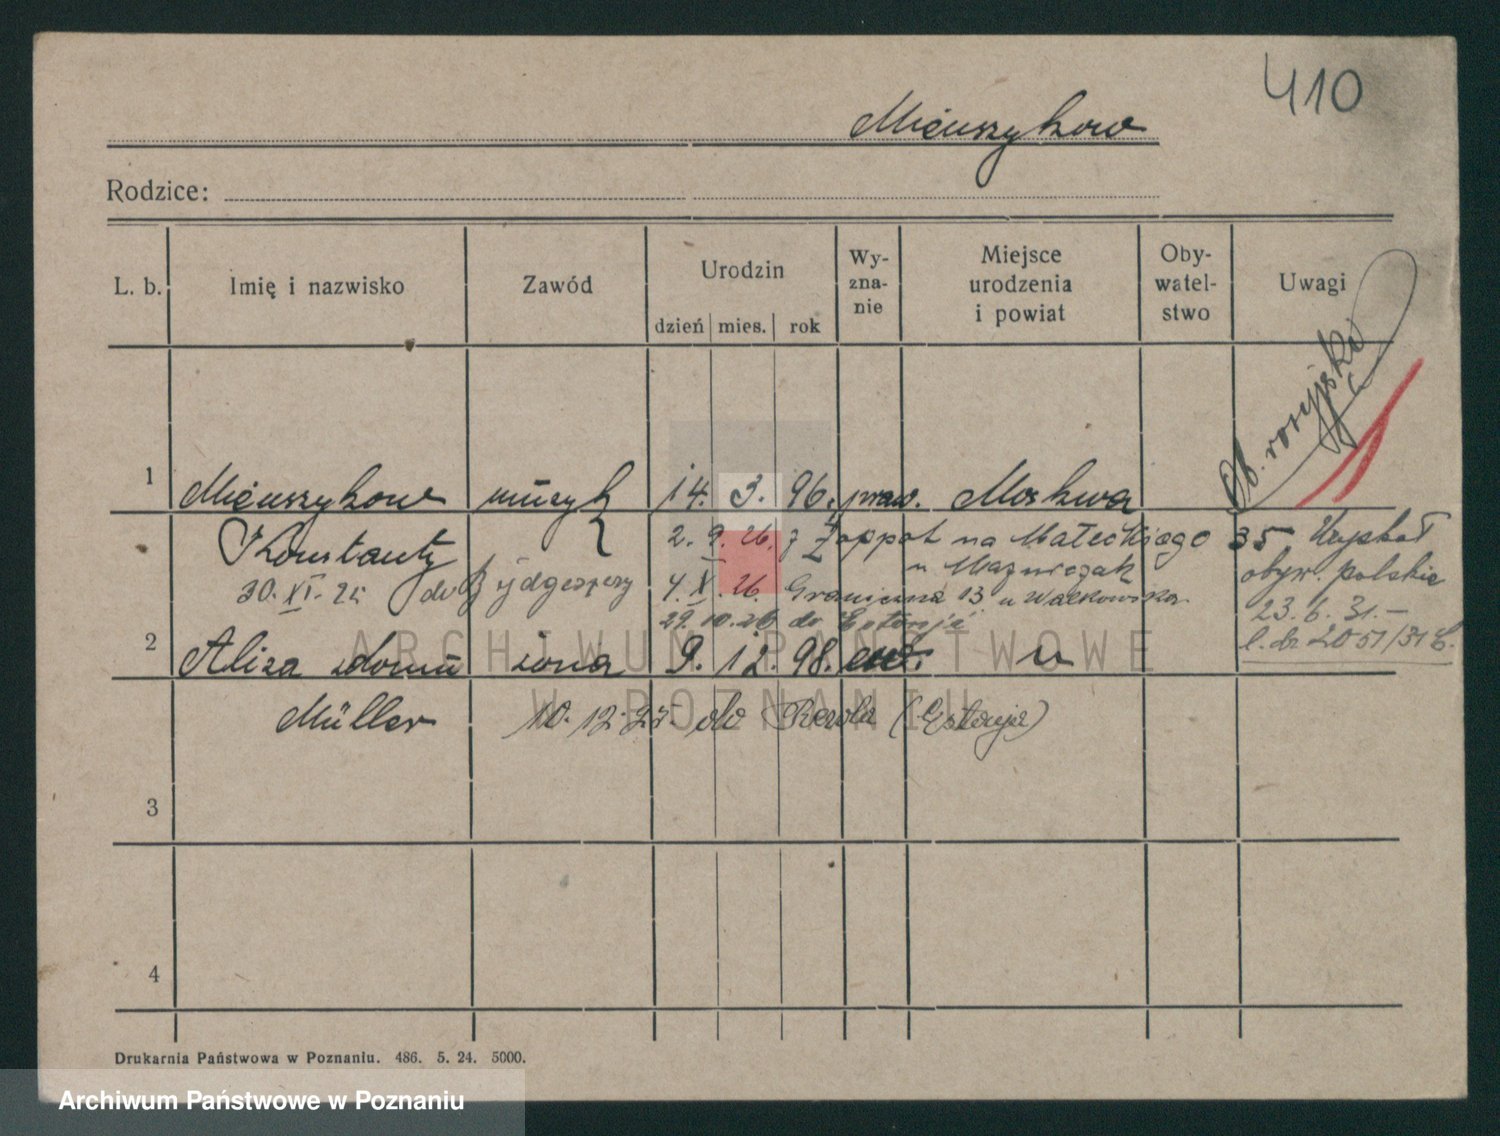 410
Mieuszykow
Rodzice:
L. b. Imię i nazwisko Zawód Urodzin dzień mies. rok Wy-zna-nie Miejsce urodzenia i powiat Oby-watel-stwo Uwagi
Ob. rosyjski
1 Mieuszykow muzyk 14. 3. 96. praw. Moskwa
Konstanty 2. 9. 26. z Zoppot na Małeckiego 35 Uzyskał
u Mazurczak obyw. polskie
30. XI. 24 do Bydgoszczy 4. X. 26. Graniczna 13 u Walkowska 23. 6. 31.-
29. 10. 26 do l. dz 2051/31
2 Aliza z domu żona 9. 12. 98. ew. u
Müller 10. 12. 27. do Rewla (Estonja)
3
4
Drukarnia Państwowa w Poznaniu. 486. 5. 24. 5000.
ARCHIWUM PAŃSTWOWE
W POZNANIU
Archiwum Państwowe w Poznaniu